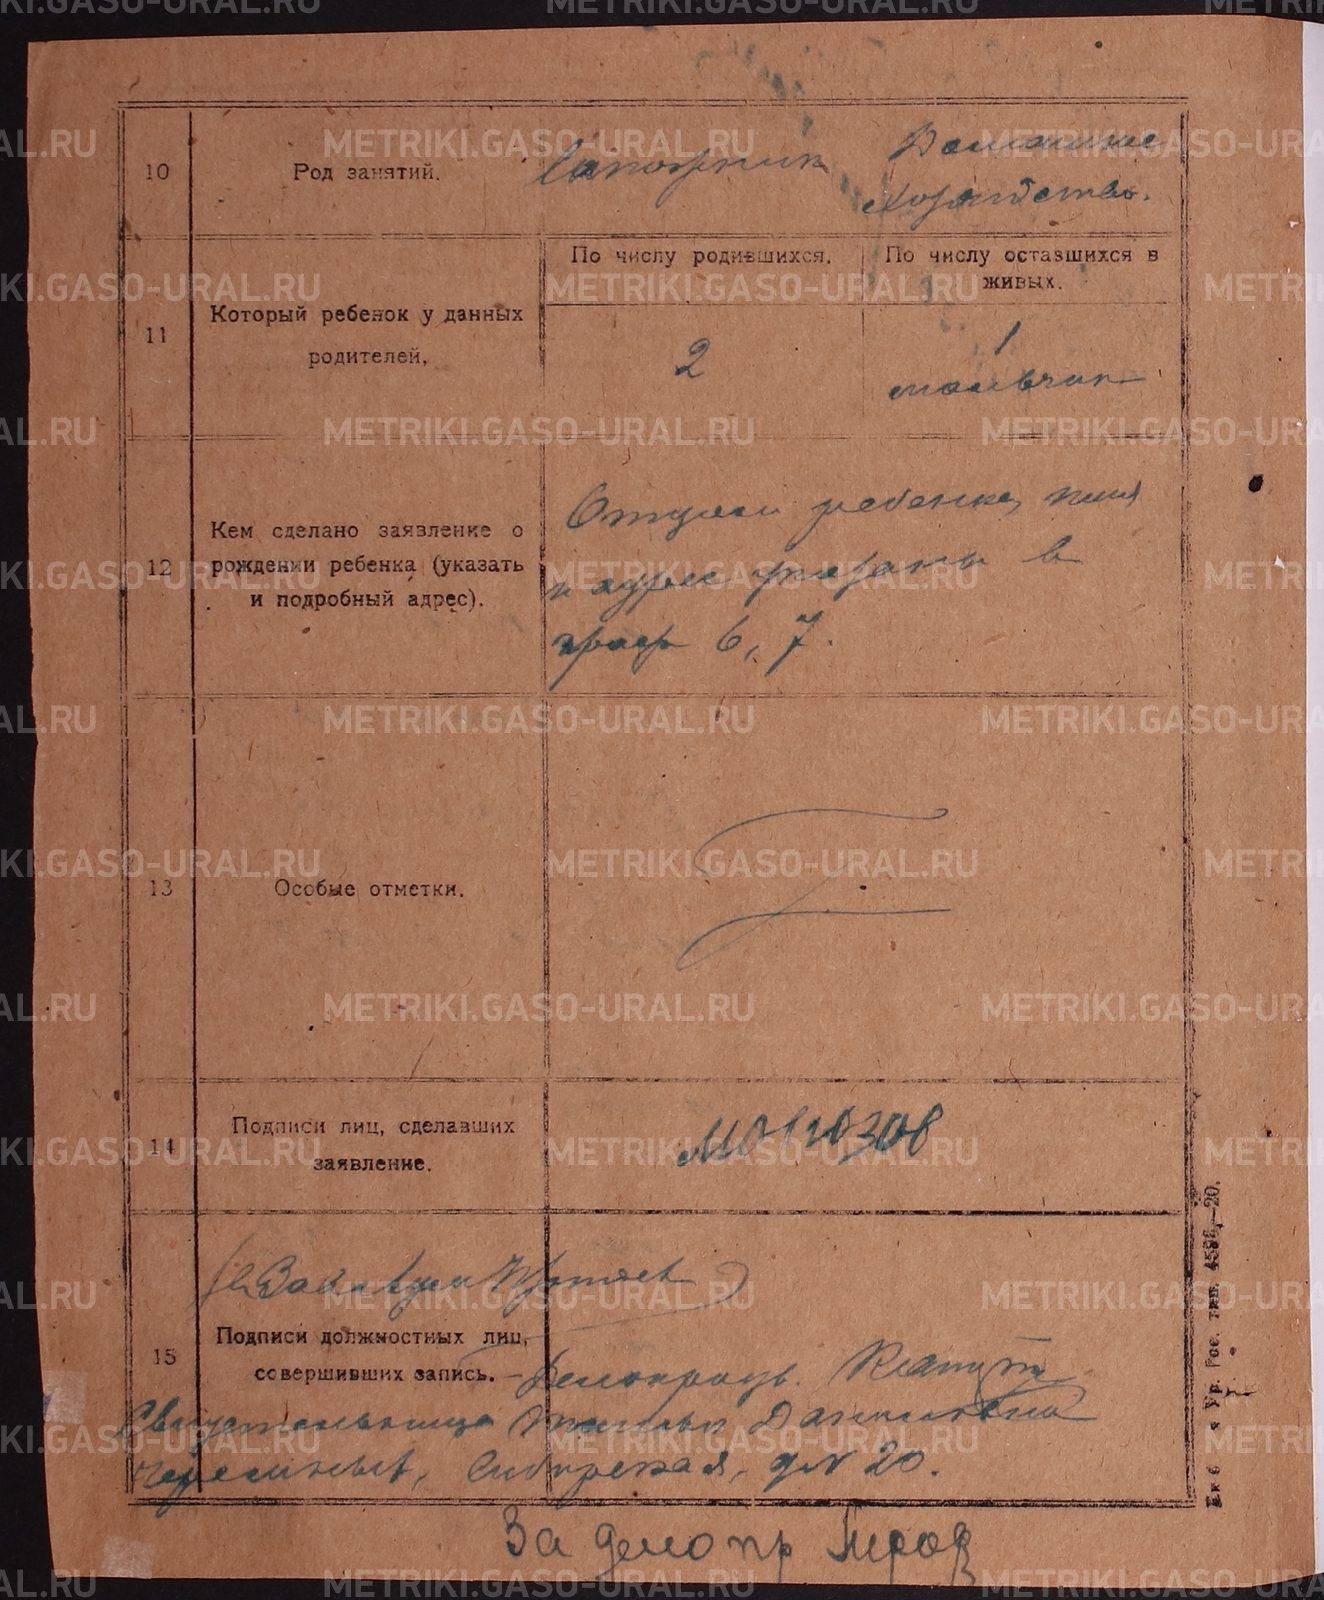 10 Род занятий. Сапожник Домашнее
хозяйство.
По числу родившихся. По числу оставшихся в
живых.
11 Который ребенок у данных
родителей,
2 1
мальчик
12 Кем сделано заявление о
рождении ребенка (указать
и подробный адрес).
Отцом ребенка, имя
и адрес указаны в
граф 6, 7.
13 Особые отметки.
14 Подписи лиц, сделавших
заявление.
Морозов
Подписи должностных лиц,
15 совершивших запись.
Делопроизв.
Свидетельница Даниловна
Сибирская, д № 20.
За делопр
Ур. Гос. тип. 4596,—20.
METRIKI.GASO-URAL.RU